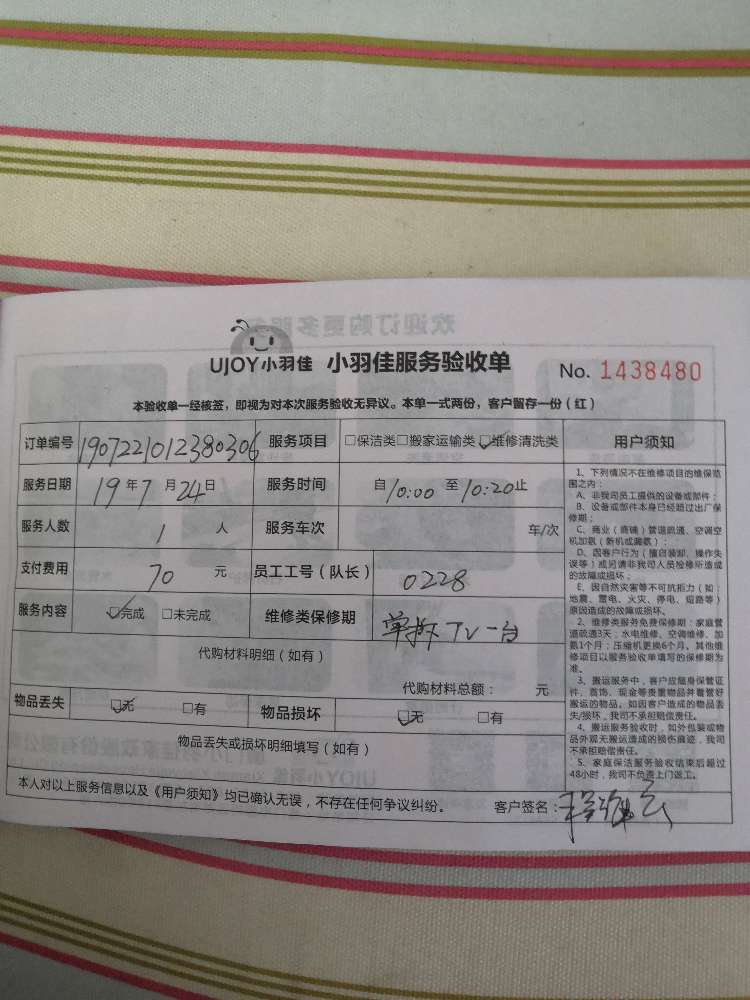 UJOY小羽佳 小羽佳服务验收单 No. 1438480
本验收单一经核签，即视为对本次服务验收无异议。本单一式两份，客户留存一份（红）
订单编号 1907221012380306 服务项目 □保洁类□搬家运输类☑维修清洗类 用户须知
服务日期 19年7月24日 服务时间 自10:00至10:20止
服务人数 1 人 服务车次 车/次
支付费用 70 元 员工工号（队长） 0228
服务内容 ☑完成 □未完成 维修类保修期 单拆TV一台
代购材料明细（如有）
代购材料总额： 元
物品丢失 ☑无 □有 物品损坏 ☑无 □有
物品丢失或损坏明细填写（如有）
本人对以上服务信息以及《用户须知》均已确认无误，不存在任何争议纠纷。 客户签名：
1、下列情况不在维修项目的维保范
围之内：
A、非我司员工提供的设备或部件；
B、设备或部件本身已经超过出厂保
修期；
C、商业（商铺）管道疏通、空调空
机加氨（新机或漏氨）；
D、因客户行为（擅自装卸、操作失
误等）或另请非我司人员检修所造成
的故障或损坏；
E、因自然灾害等不可抗拒力（如：
地震、雷电、火灾、停电、短路等）
原因造成的故障或损坏。
2、维修类服务免费保修期：家庭管
道疏通3天；水电维修、空调维修、加
氨1个月；压缩机更换6个月。其他维
修项目以服务验收单填写的保修期为
准。
3、搬运服务中，客户应随身保管证
件、首饰、现金等贵重物品并看管好
搬运的物品。如因客户造成的物品丢
失/损坏，我司不承担赔偿责任。
4、搬运服务验收时，如外包装或物
品外观无搬运造成的损伤痕迹，我司
不承担赔偿责任。
5、家庭保洁服务验收结束后超过
48小时，我司不负责上门返工。